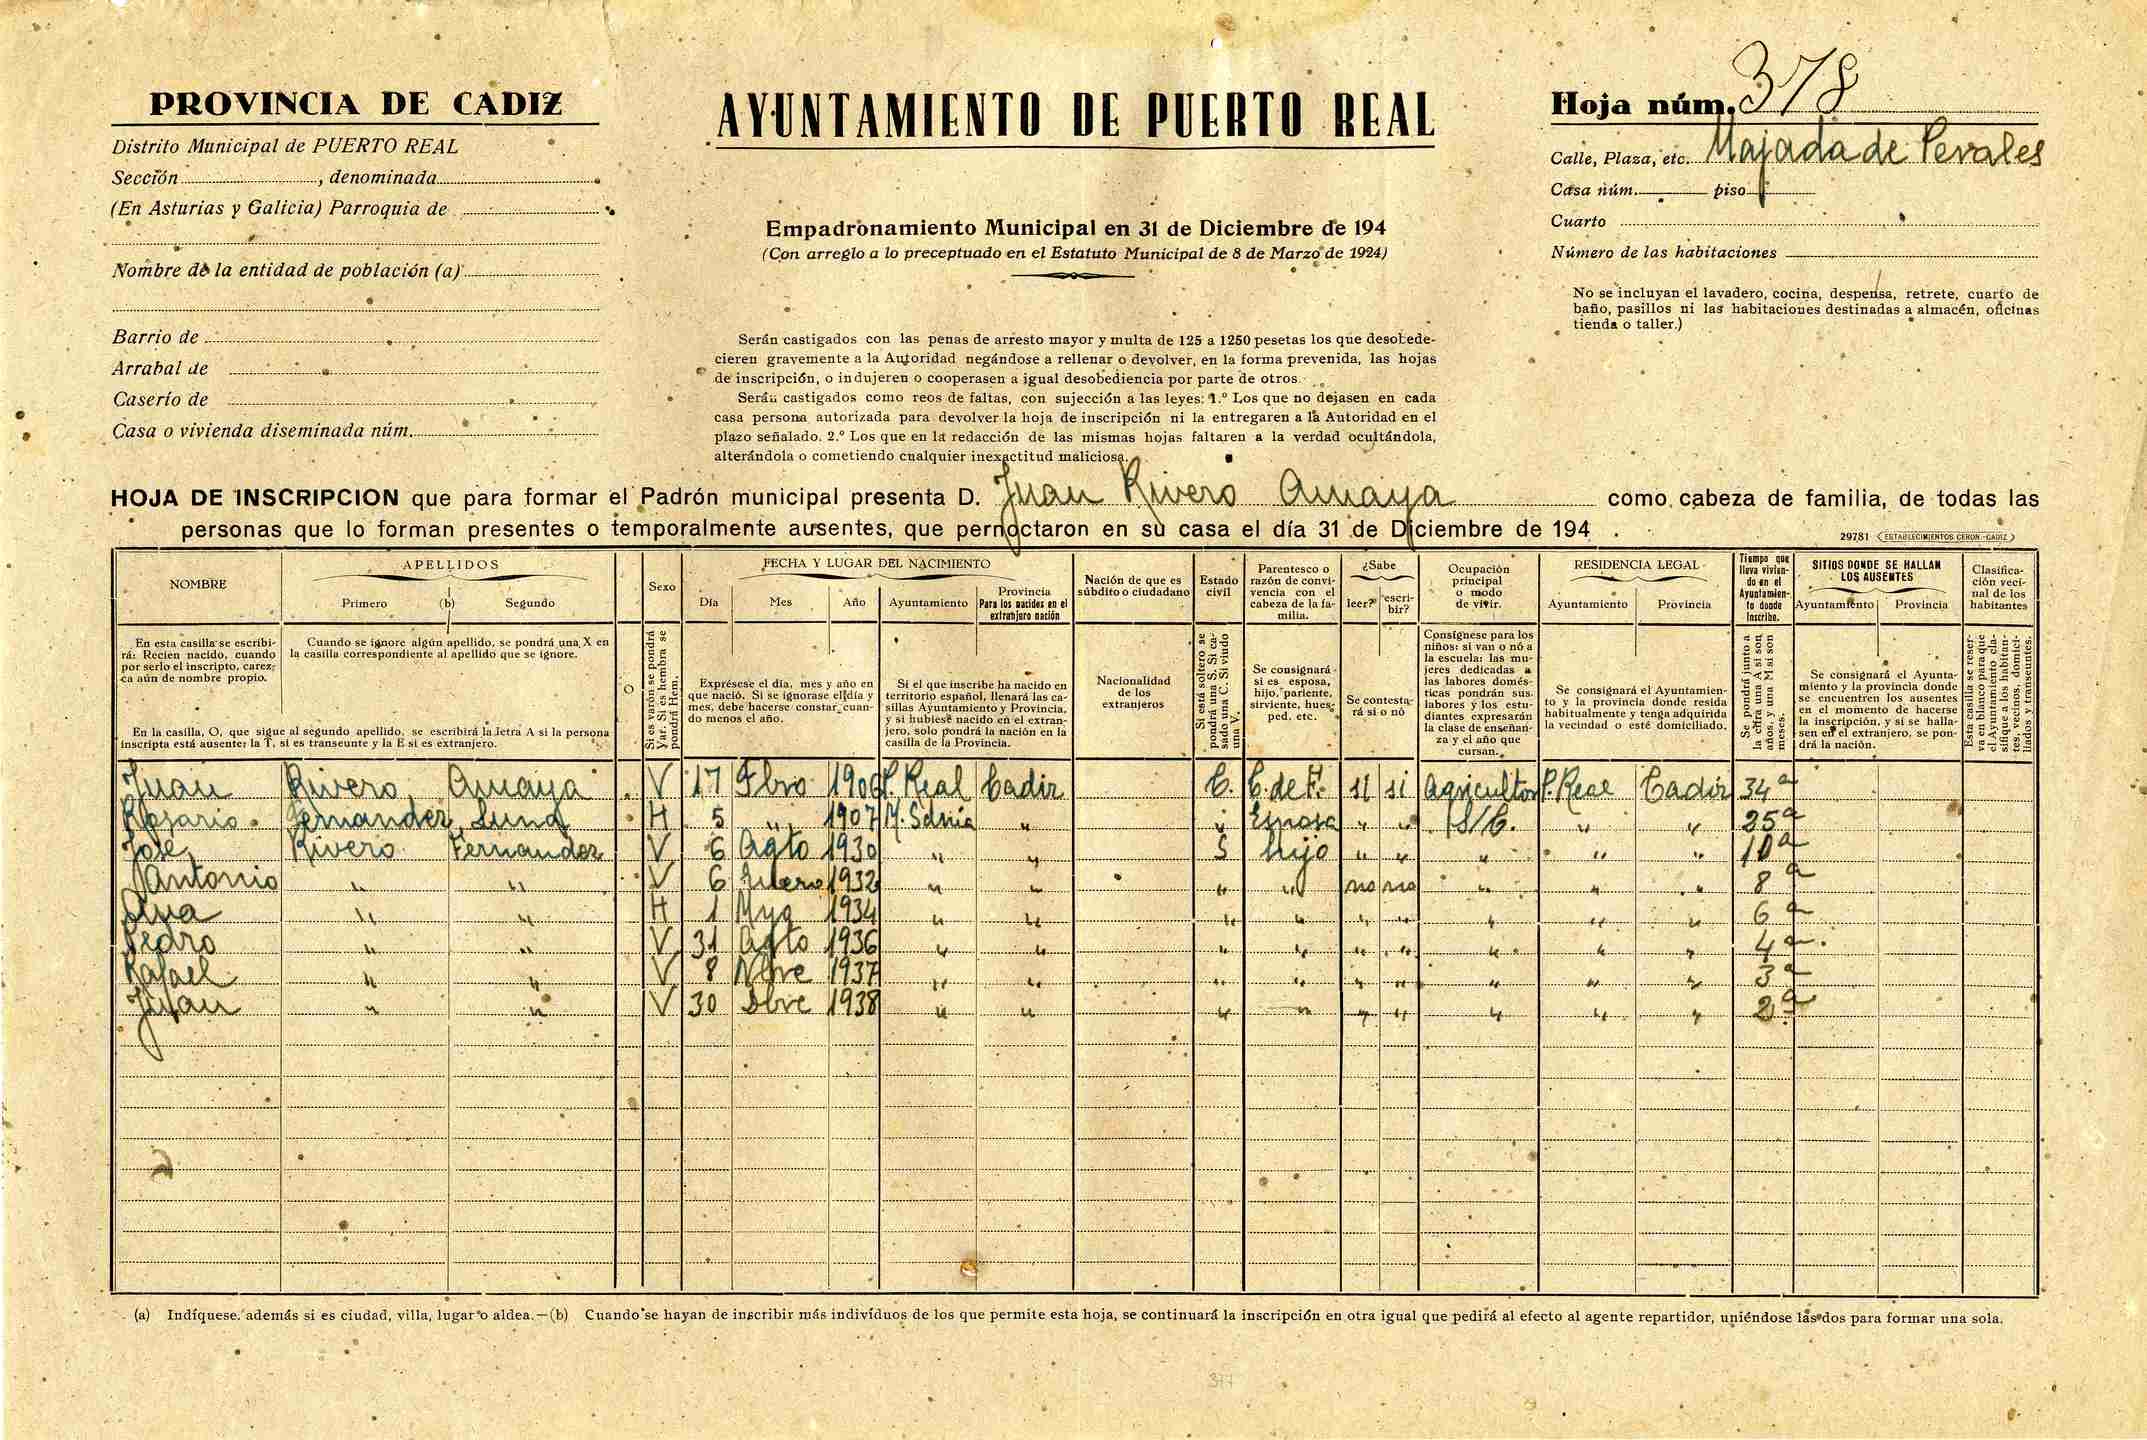 PROVINCIA DE CADIZ
Distrito Municipal de PUERTO REAL
Sección , denominada
(En Asturias y Galicia) Parroquia de
Nombre de la entidad de población (a)
Barrio de
Arrabal de
Caserío de
Casa o vivienda diseminada núm.
AYUNTAMIENTO DE PUERTO REAL
Empadronamiento Municipal en 31 de Diciembre de 194
(Con arreglo a lo preceptuado en el Estatuto Municipal de 8 de Marzo de 1924)
Serán castigados con las penas de arresto mayor y multa de 125 a 1250 pesetas los que desobede-
cieren gravemente a la Autoridad negándose a rellenar o devolver, en la forma prevenida, las hojas
de inscripción, o indujeren o cooperasen a igual desobediencia por parte de otros.
Serán castigados como reos de faltas, con sujección a las leyes: 1.º Los que no dejasen en cada
casa persona autorizada para devolver la hoja de inscripción ni la entregaren a la Autoridad en el
plazo señalado. 2.º Los que en la redacción de las mismas hojas faltaren a la verdad ocultándola,
alterándola o cometiendo cualquier inexactitud maliciosa.
Hoja núm. 378
Calle, Plaza, etc. Majada de Perales
Casa núm. piso
Cuarto
Número de las habitaciones
No se incluyan el lavadero, cocina, despensa, retrete, cuarto de
baño, pasillos ni las habitaciones destinadas a almacén, oficinas
tienda o taller.)
HOJA DE INSCRIPCION que para formar el Padrón municipal presenta D. Juan Rivero Amaya como cabeza de familia, de todas las
personas que lo forman presentes o temporalmente ausentes, que pernoctaron en su casa el día 31 de Diciembre de 194 .
29781 ESTABLECIMIENTOS CERON.-CADIZ
NOMBRE
APELLIDOS
Primero (b) Segundo
O
Sexo
FECHA Y LUGAR DEL NACIMIENTO
Día Mes Año Ayuntamiento
Provincia
Para los nacidos en el
extranjero nación
Nación de que es
súbdito o ciudadano
Estado
civil
Parentesco o
razón de convi-
vencia con el
cabeza de la fa-
milia.
¿Sabe
leer? escri-
bir?
Ocupación
principal
o modo
de vivir.
RESIDENCIA LEGAL
Ayuntamiento Provincia
Tiempo que
lleva vivien-
do en el
Ayuntamien-
to donde
inscribe.
SITIOS DONDE SE HALLAN
LOS AUSENTES
Ayuntamiento Provincia
Clasifica-
ción veci-
nal de los
habitantes
En esta casilla se escribi-
rá: Recien nacido, cuando
por serlo el inscripto, carez-
ca aún de nombre propio.
Cuando se ignore algún apellido, se pondrá una X en
la casilla correspondiente al apellido que se ignore.
En la casilla, O, que sigue al segundo apellido, se escribirá la letra A si la persona
inscripta está ausente: la T, si es transeunte y la E si es extranjero.
Si es varón se pondrá
Var. Si es hembra se
pondrá Hem.
Expresese el día, mes y año en
que nació. Si se ignorase el día y
mes, debe hacerse constar cuan-
do menos el año.
Si el que inscribe ha nacido en
territorio español, llenará las ca-
sillas Ayuntamiento y Provincia,
y si hubiese nacido en el extran-
jero, solo pondrá la nación en la
casilla de la Provincia.
Nacionalidad
de los
extranjeros
Si está soltero se
pondrá una S. Si ca-
sado una C. Si viudo
una V.
Se consignará
si es esposa,
hijo, pariente,
sirviente, hues-
ped. etc.
Se contesta-
rá si o nó
Consígnese para los
niños: si van o nó a
la escuela: las mu-
jeres dedicadas a
las labores domés-
ticas pondrán sus
labores y los estu-
diantes expresarán
la clase de enseñan-
za y el año que
cursan.
Se consignará el Ayuntamien-
to y la provincia donde resida
habitualmente y tenga adquirida
la vecindad o esté domiciliado.
Se pondrá junto a
la cifra una A si son
años, y una M si son
meses.
Se consignará el Ayunta-
miento y la provincia donde
se encuentren los ausentes
en el momento de hacerse
la inscripción, y si se halla-
sen en el extranjero, se pon-
drá la nación.
Esta casilla se reser-
va en blanco para que
el Ayuntamiento cla-
sifique a los habitan-
tes, vecinos, domici-
liados y transeuntes.
Juan Rivero Amaya V 17 Fbro 1906 P. Real Cadiz C. C. de F. si si Agricultor P. Real Cadiz 34 a
Rosario Fernandez Luna H 5 " 1907 M. Sdnia " " Esposa " " S/C. " " 25 a
José Rivero Fernandez V 6 Agto 1930 " " S hijo " " " " " 10 a
Antonio " " V 6 Enero 1932 " " " " no no " " " 8 a
Ana " " H 1 Myo 1934 " " " " " " " " " 6 a
Pedro " " V 31 Agto 1936 " " " " " " " " " 4 a.
Rafael " " V 8 Nbre 1937 " " " " " " " " " 3 a
Juan " " V 30 Dbre 1938 " " " " " " " " " 2 a
(a) Indíquese además si es ciudad, villa, lugar o aldea.—(b) Cuando se hayan de inscribir más individuos de los que permite esta hoja, se continuará la inscripción en otra igual que pedirá al efecto al agente repartidor, uniéndose las dos para formar una sola.
377